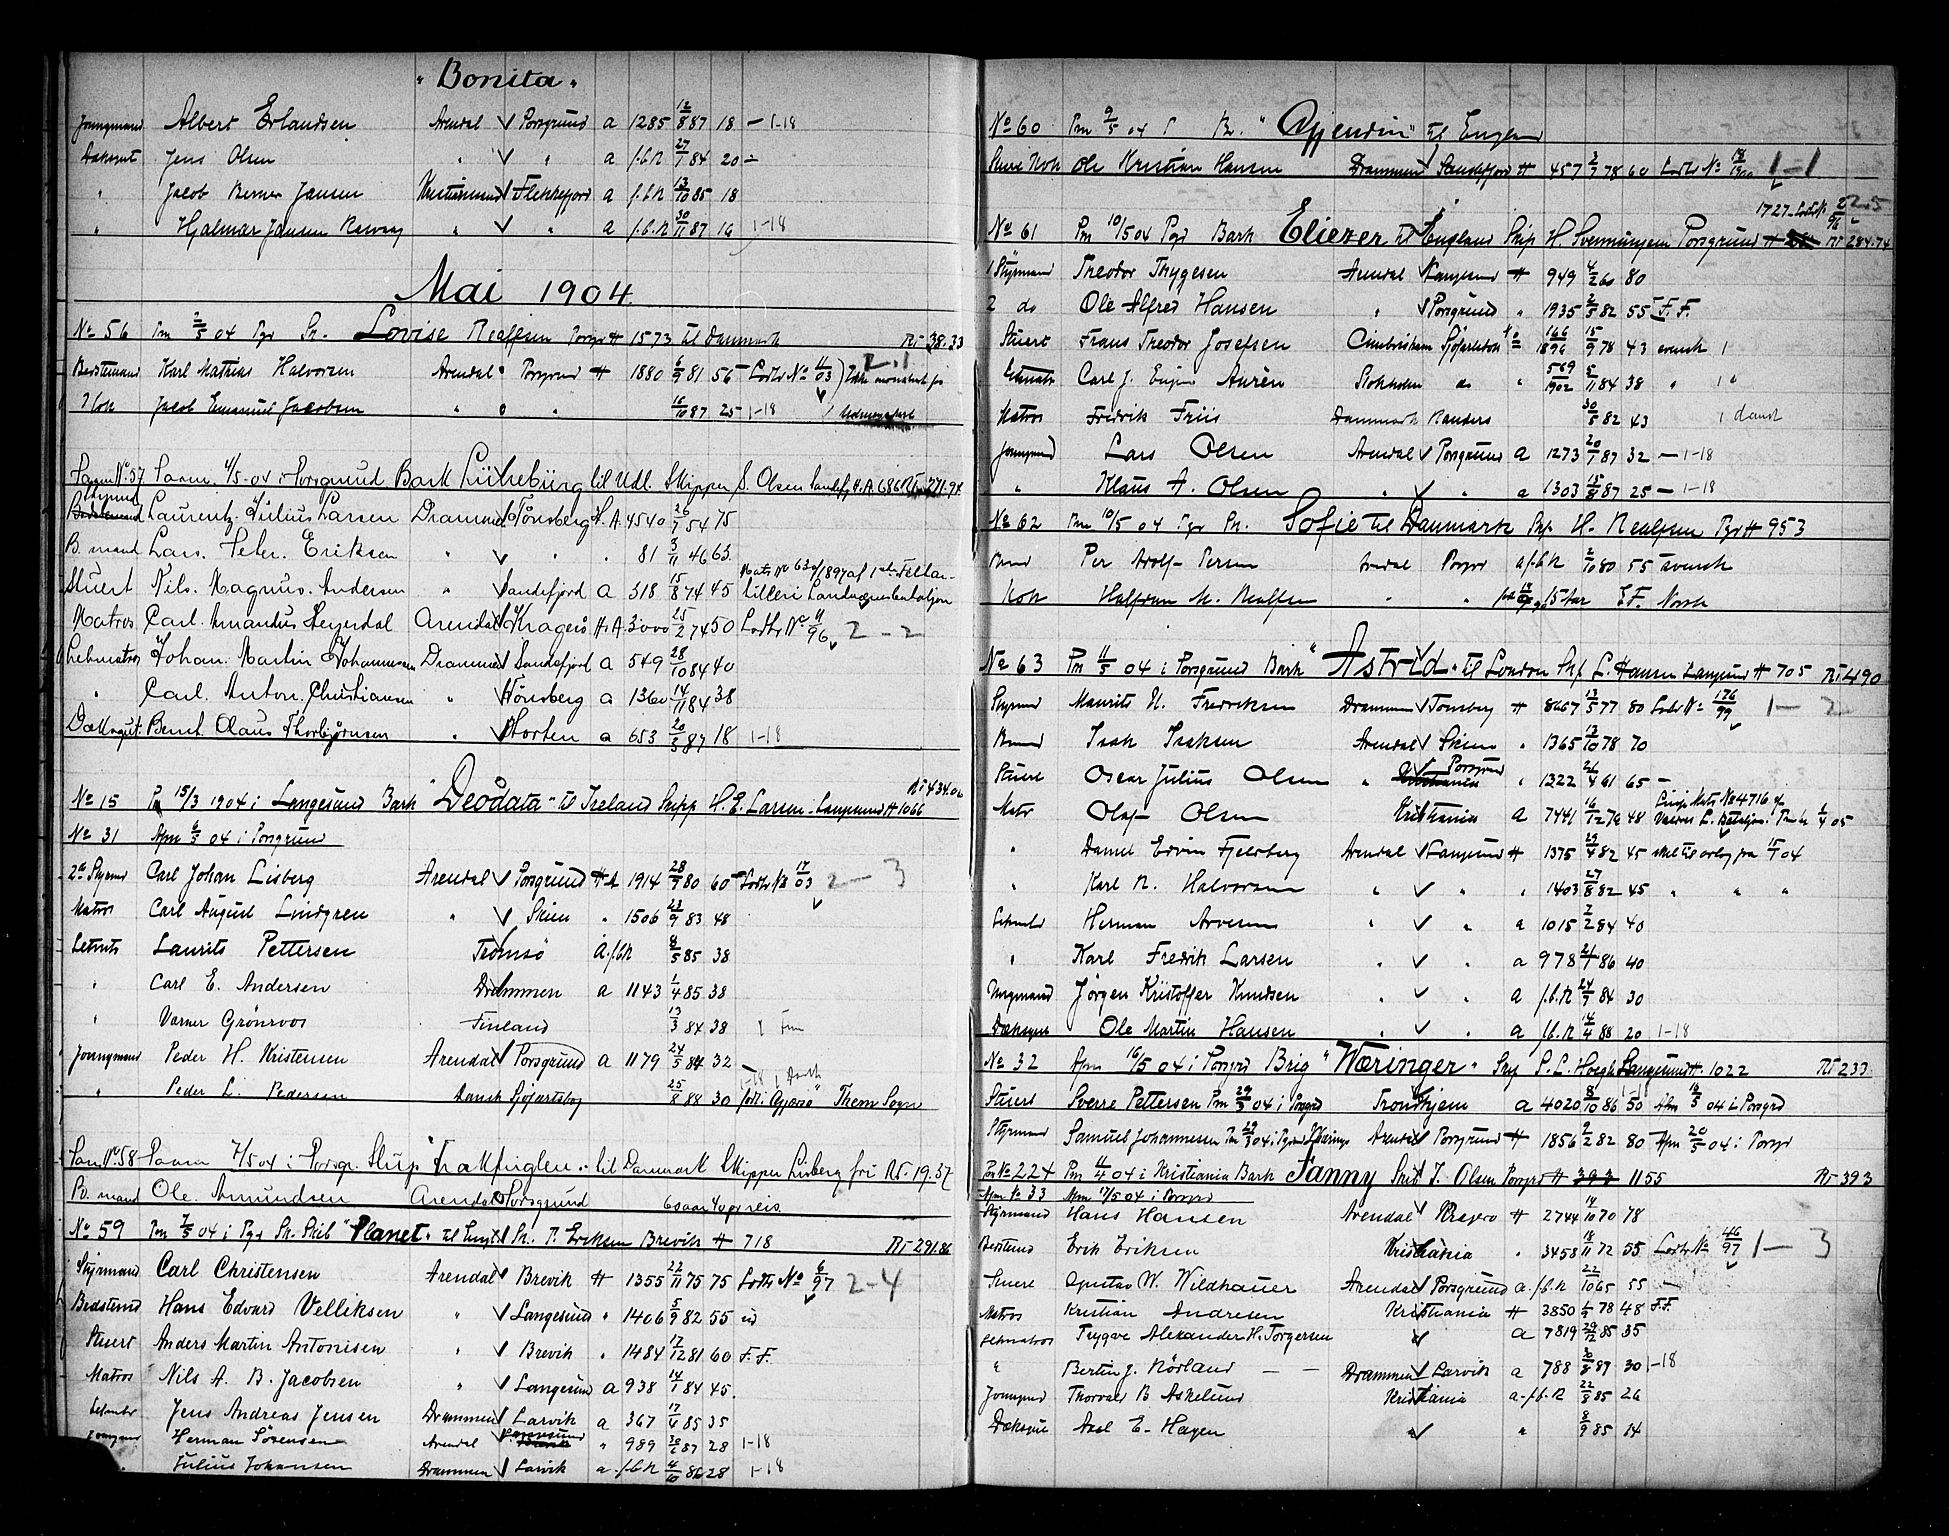 "Bonita"
Jonngmand Albert Erlandsen Arendal Porsgrund a 1285 12/8 87 18 – 1-18
Dæksgut Jens Olsen " " a f.b.R 27/1 84 20 –
" Jacob Berner Jansen Kristiansund Flekkefjord a f.b.R 13/10 85 18
" Hjalmar Jansen " " a f.b.R 30/11 87 16 1-18
Mai 1904
No 56 Pm 2/5 04 Pgr Sk. Lovise Realfsen Porsgr H 1573 til Danmark Rt 38.33
Bedstemand Karl Mathias Halvorsen Arendal Porsgrund H 1880 6/9 81 56 Lodts No 11/03
Kok Jacob Emanuel Jacobsen " " 16/10 87 25 1-18
No 57 Paam. 4/5-04 i Porsgrund Bark Lüneburg til Udl. Skipper S. Olsen H.A 686
Styrmand Laurentz Julius Larsen Drammen Tönsberg H.A. 4540 26/7 54 75
B. mand Lars. Peter. Eriksen " " " 81 3/11 46 65
Stuert Nils. Magnus. Andersen " Sandefjord a 318 15/8 74 45
Matros Carl. Amandus Heyerdal Arendal Kragerö H.A. 3000 25/2 74 50 Lodts No 11/96 2-2
Letmatros Johan. Martin Johannesen Drammen Sandefjord a 549 28/10 84 40
" Carl. Anton. Christiansen " Tönsberg a 1360 14/11 84 38
Dæksgut Bernt. Olaus Thorbjørnsen " Horten a 653 20/3 87 18 1-18
No 15 Pm 15/3 1904 i Langesund Bark "Deodata" til Ireland Skipp H. E. Larsen Langesund H 1066 Rt 434.06
No 31 Afm 6/5 04 i Porsgrund
2d Styrmd Carl Johan Lisberg Arendal Porsgrund H A 1914 28/7 80 60 Lodts No 17/03 2-3
Matros Carl August Lindgren " Skien " 1506 23/9 83 48
Letmts Laurits Pettersen Tromsö a f.b.R 8/5 85 38
" Carl E. Andersen Drammen a 1143 1/4 85 38
" Varner Grönroos Finland 13/3 84 38
Jonngmand Peder H. Kristensen Arendal Porsgrund a 1179 24/5 84 32
" Peder L. Pedersen Dansk 25/8 88 30 Them Sogn
No 58 Paam 7/5 04 i Porsgr. til Danmark Skipper Lisberg fri Rt. 19.37
B. mand Ole. Amundsen Arendal Porsgrund
No 59 Pm 7/5 04 i Pgr Sk. Skib "Planet" til Engl Sk. P. Eriksen Brevik H 718 Rt 291.86
Styrmand Carl Christensen Arendal Brevik H 1355 22/11 75 75 Lodts No 6/97 2-4
Bedstmd Hans Edvard Velliksen " Langesund " 1406 5/9 82 55
Stuert Anders Martin Antonisen " Brevik " 1484 17/12 81 60 F.F.
Matros Nils A. B. Jacobsen " Langesund a 938 14/1 84 45
Jens Andreas Jensen Drammen Larvik a 367 17/6 85 35
Herman Sörensen Arendal " 989 30/6 87 28 1-18
Julius Johansen Drammen Larvik a f.b.R 4/10 86 28 1-18
No 60 Pm 9/5 04 til England
Ole Kristian Hansen Drammen Sandefjord H 457 2/7 78 60 Lodts No 1-1
No 61 Pm 10/5 04 Pgr Bark Eliezer til England Skip H. Svenningsen Porsgrund Rt 284.74
1 Styrmand Theodor Thygesen Arendal Langesund H 949 4/2 60 80
2 do Ole Alfred Hansen " Porsgrund " 1935 2/5 82 55 F.F.
Stuert Frans Theodor Josefsen Cimbrisham 166/1896 15/9 78 43 svensk
Carl J. Aurèn Stokholm do " 569/1902 5/11 84 38 "
Matros Fredrik Friis Danmark Randers 30/5 82 43 dansk
Jonngmd Lars Olsen Arendal Porsgrund a 1273 20/1 87 32 – 1-18
" Klaus A. Olsen " " a 1303 15/8 87 25 – 1-18
No 62 Pm 10/5 04 Pgr Sk. Sofie til Danmark Skp H. Realfsen Pgr H 953
Per Adolf Persen Arendal Porsgr a f.b.R 2/10 80 55 svensk
Kok Halfdan M. Realfsen " " Norsk
No 63 Pm 11/5 04 i Porsgrund Bark "Astrid" til London Skp L. Hansen Langesund H 705 Rt 490
Styrmd Maurits N. Fredriksen Drammen Tønsberg H 8667 13/5 77 80 Lodts No 176/99 1-2
Isak Isaksen Arendal Skien " 1365 13/10 78 70
Stuert Oscar Julius Olsen " Porsgrund " 1322 26/4 61 65 –
Matr Olaf Olsen Kristiania a 7441 16/12 76 48
" Daniel Edvin Fjelsberg Arendal Langesund H 1375 29/4 82 45
" Karl R. Halvorsen " " " 1403 27/8 82 45 " " "
Herman Arvesen " " a 1015 2/2 84 40
" Karl Fredrik Larsen " " a 978 21/7 86 40
Jørgen Kristoffer Knudsen " " a f.b.R 24/9 84 30
Dæksgut Ole Martin Hansen " " a f.b.R 14/4 88 20 1-18
No 32 Afm 16/5 04 i Porsgrd Brig "Wæringer" Skp P. L. Hoegh Langesund H. 1022 Rt 233
Stuert Sverre Pettersen Pm 29/3 04 i Porsgrd Trondhjem a 4020 8/10 86 50 Afm 16/5 04 i Porsgrd
Styrmand Samuel Johannessen Pm 29/3 04 i Arendal Porsgrund H 1856 9/2 82 80 Afm 20/5 04 i Porsgr
Pm No 224 Pm 11/4 04 i Kristiania Bark Fanny Skib J. Olsen Porsgrd H 393 1155 Rt 393
Afm No 33 Afm 17/5 04 i Porsgrd
Styrmand Hans Hansen Arendal Kragerö H 2744 14/10 70 78
Bedstmd Erik Eriksen Kristiania " 3458 18/11 72 55 Lodts No 46/97 1-3
Stuert Gustav W. Wildhauer Arendal Porsgrund a f.b.R 22/10 65 55 –
Matros Kristian Andresen Kristiania H 3850 1/9 78 48 F.F.
Letmatros Trygve Alexander H. Torgersen " a 7819 29/12 85 35
" Bertin J. Nörland Drammen Larvik a 788 30/8 87 30 1-18
Jonngmd Thorvald B Askelund Kristiania a f.b.R 22/8 85 26
Dæksgut Axel E. Hagen " " 8/9 85 14